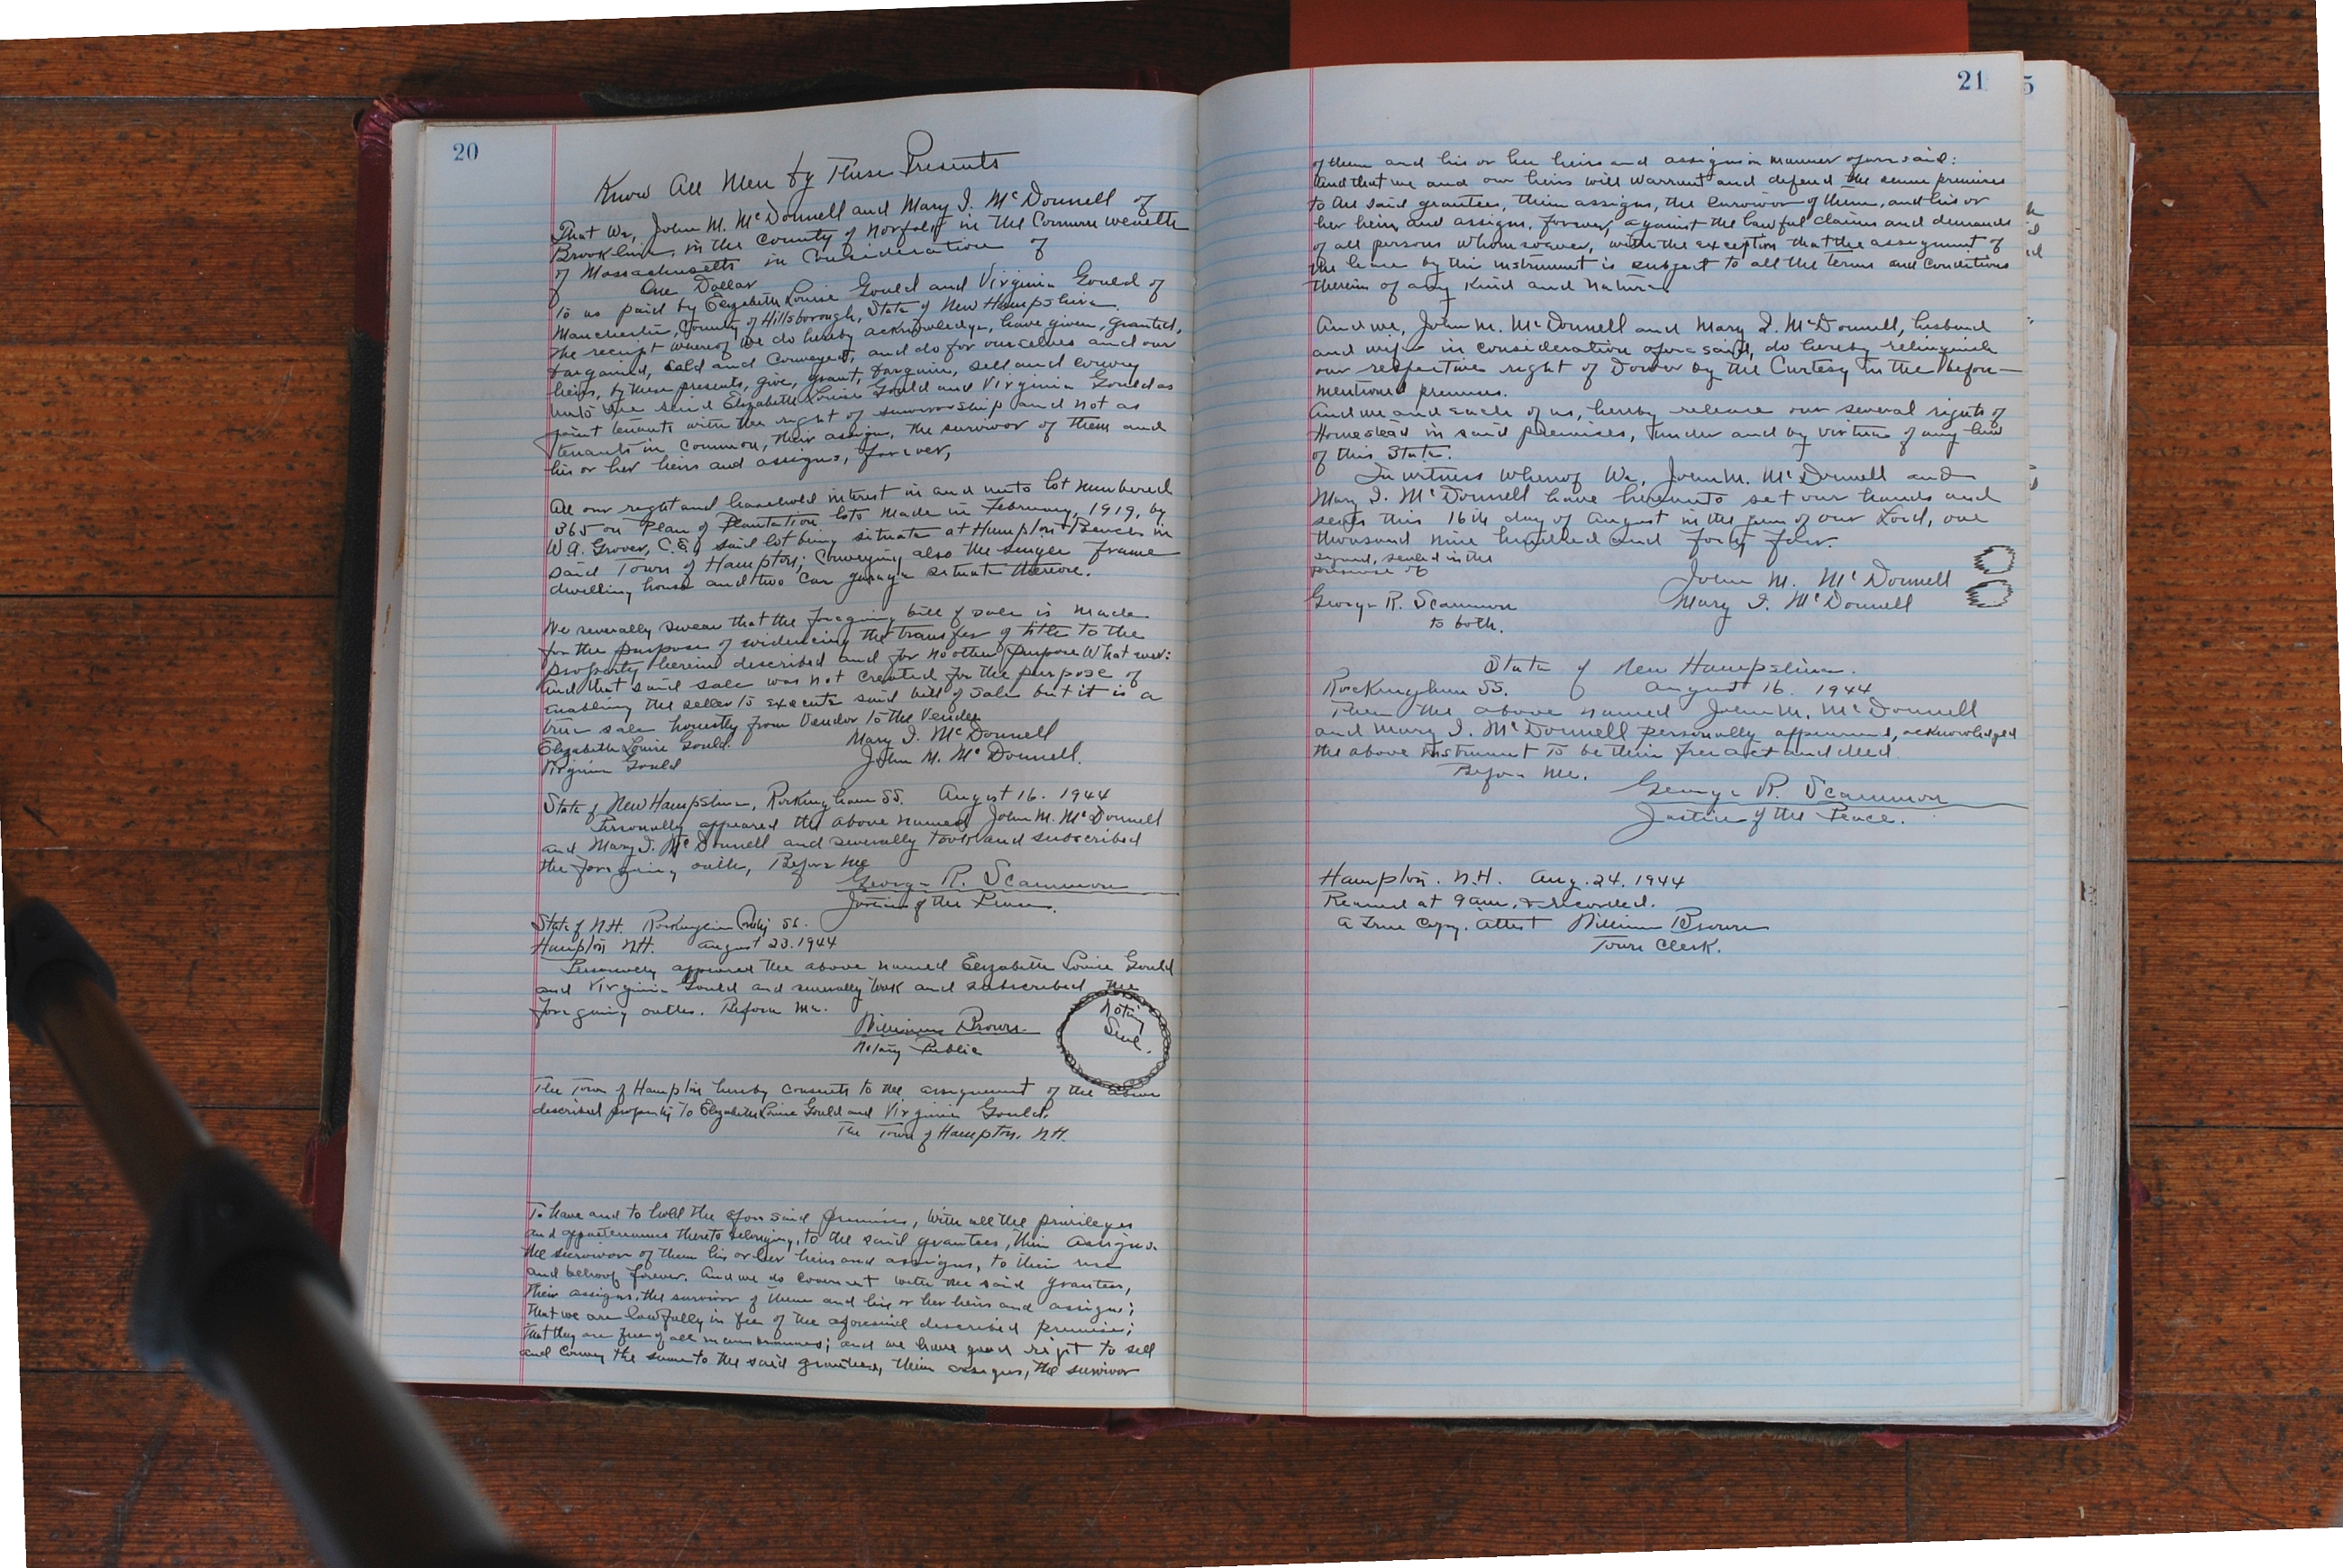 20
Know All Men by These Presents
That We, John M. McDonnell and Mary I. McDonnell of
Brookline, in the County of Norfolk in the Commonwealth
of Massachusetts in Consideration of
One Dollar
to us paid by Elizabeth Louise Gould and Virginia Gould of
Manchester, County of Hillsborough, State of New Hampshire
the receipt whereof we do hereby acknowledge, have given, granted,
bargained, sold and conveyed, and do for ourselves and our
heirs, by these presents, give, grant, bargain, sell and convey
unto the said Elizabeth Louise Gould and Virginia Gould as
joint tenants with the right of survivorship and not as
tenants in common, their assigns, the survivor of them and
his or her heirs and assigns, forever,
All our right and leasehold interest in and unto lot numbered
365 on Plan of Plantation lots made in February, 1919, by
W.A. Grover, C.E., said lot being situate at Hampton Beach in
said Town of Hampton; Conveying also the single frame
dwelling house and two car garage situate thereon.
We severally swear that the foregoing bill of sale is made
for the purpose of evidencing the transfer of title to the
property herein described and for no other purpose whatever:
And that said sale was not created for the purpose of
enabling the seller to execute said bill of sale but it is a
true sale honestly from Vendor to the Vendee
Elizabeth Louise Gould. Mary I. McDonnell
Virginia Gould John M. McDonnell.
State of New Hampshire, Rockingham SS. August 16. 1944
Personally appeared the above named John M. McDonnell
and Mary I. McDonnell and severally took and subscribed
the foregoing oath, Before me
George R. Scammon
Justice of the Peace.
State of N.H. Rockingham County SS.
Hampton N.H. August 23. 1944
Personally appeared the above named Elizabeth Louise Gould
and Virginia Gould and severally took and subscribed the
foregoing oaths. Before me.
William Brown
Notary Public
Notary
Seal.
The Town of Hampton hereby consents to the assignment of the above
described property to Elizabeth Louise Gould and Virginia Gould.
The Town of Hampton. N.H.
To have and to hold the aforesaid premises, with all the privileges
and appurtenances thereto belonging, to the said grantees, their assigns.
the survivor of them his or her heirs and assigns, to their use
and behoof forever. And we do covenant with the said grantees,
their assigns, the survivor of them and his or her heirs and assigns;
that we are lawfully in fee of the aforesaid described premises;
that they are free of all incumbrances; and we have good right to sell
and convey the same to the said grantees, their assigns, the survivor
21
of them and his or her heirs and assigns in manner aforesaid:
And that we and our heirs will warrant and defend the same premises
to the said grantees, their assigns, the survivor of them, and his or
her heirs and assigns, forever, against the lawful claims and demands
of all persons whomsoever, with the exception that the assignment of
the lease by this instrument is subject to all the terms and conditions
therein of any kind and nature
And we, John M. McDonnell and Mary I. McDonnell, husband
and wife in consideration aforesaid, do hereby relinquish
our respective right of Dower by the Curtesy in the before-
mentioned premises.
And we and each of us, hereby release our several rights of
Homestead in said premises, under and by virtue of any law
of this State.
In witness whereof We, John M. McDonnell and
Mary I. McDonnell have hereunto set our hands and
seals this 16th day of August in the year of our Lord, one
thousand nine hundred and forty four.
signed, sealed in the
presence of
John M. McDonnell
George R. Scammon Mary I. McDonnell
to both.
State of New Hampshire.
Rockingham SS. August 16. 1944
Then the above named John M. McDonnell
and Mary I. McDonnell personally appeared, acknowledged
the above instrument to be their free act and deed
Before me.
George R. Scammon
Justice of the Peace.
Hampton. N.H. Aug. 24. 1944
Received at 9 am. & recorded.
A True Copy. Attest William Brown
Town Clerk.
5